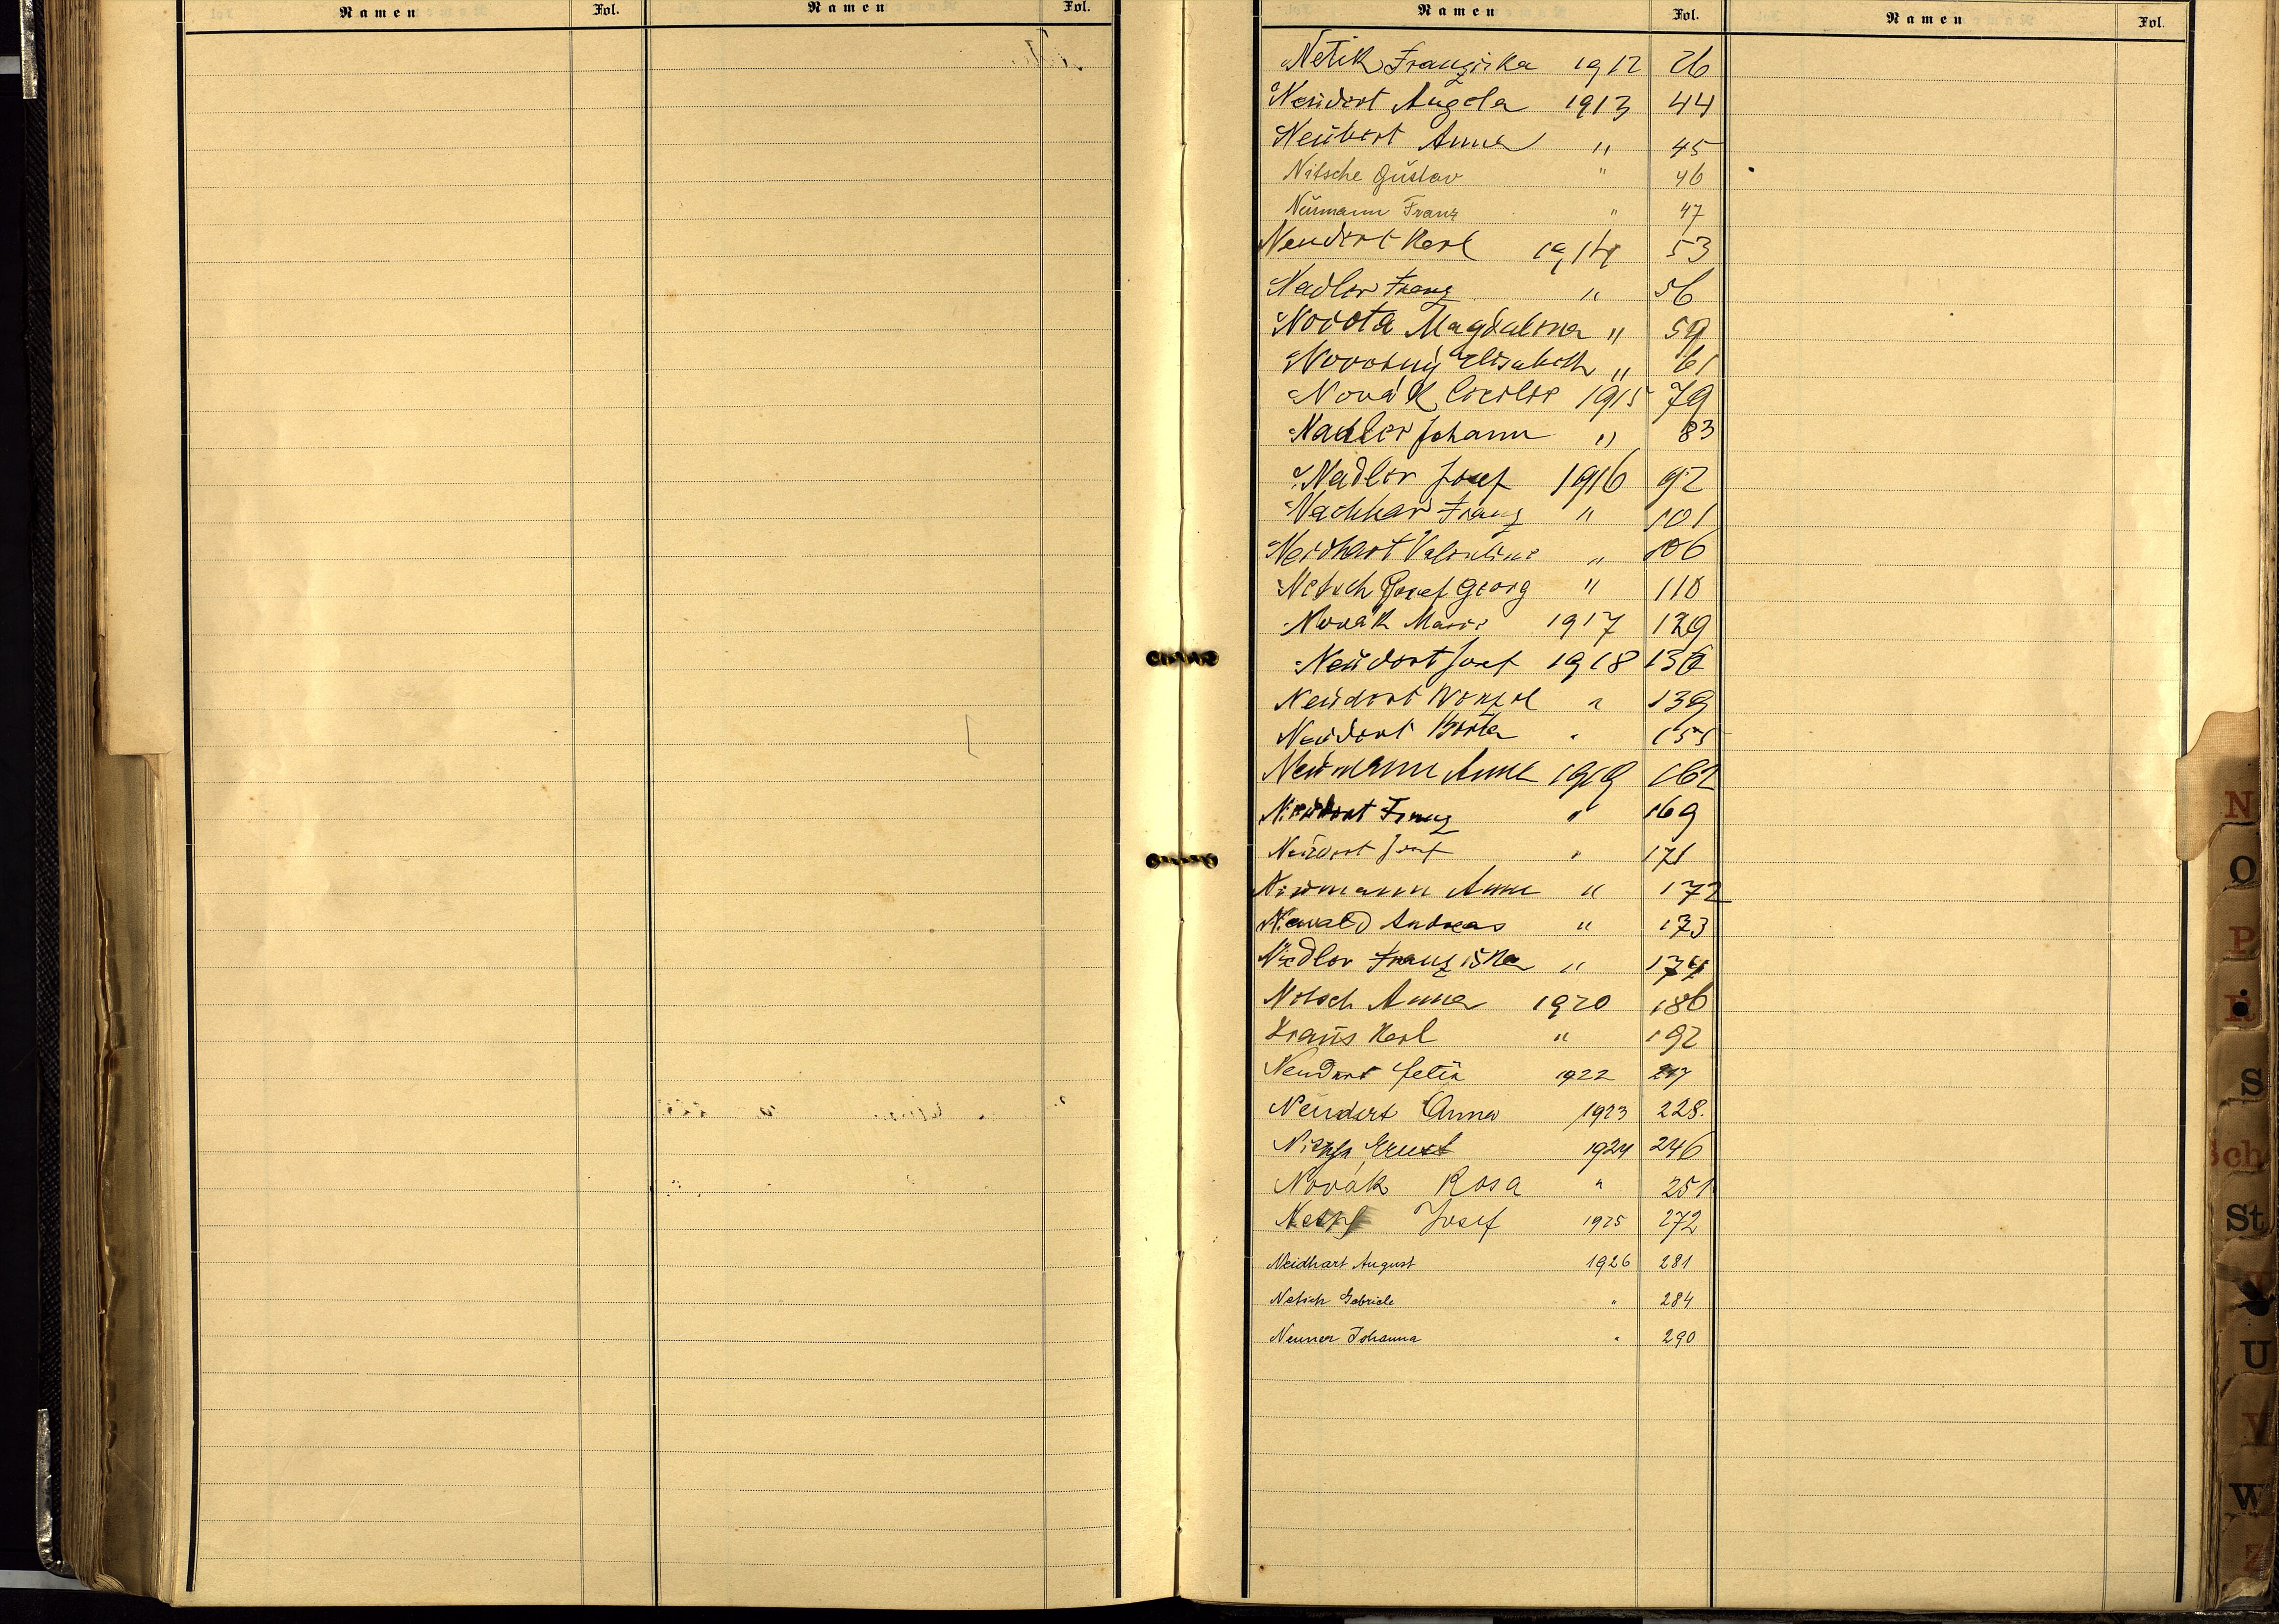 Namen Fol. Namen Fol.
Namen Fol. Namen Fol.
Netik Franziska 1912 26
Neudert Angela 1913 44
Neubert Anna " 45
Nitsche Gustav " 46
Neumann Franz " 47
Neudert Karl 1914 53
Nadler Franz " 56
Magdalena " 59
Novotný Elisabeth " 61
Novák Cäcilie 1915 79
Nadler Johann " 83
Nadler Josef 1916 92
Franz " 101
Neidhart Valentine " 106
Netsch Josef Georg " 118
Novák Marie 1917 129
Neudert Josef 1918 136
Neudert Wenzel " 139
Neudert Berta " 155
Neumann Anna 1919 162
Neudert Franz " 169
Neudert Josef " 171
Neumann Anna " 172
Newald Andreas " 173
Nadler Franziska " 174
Nitsch Anna 1920 186
Karl " 192
Neudert 1922 217
Neudert Anna 1923 228.
Ernst 1924 246
Novák Rosa " 251
Josef 1925 272
Neidhart August 1926 281
Netsch Gabriele " 284
Neuner Johanna " 290
N
O
P
R
S
Sch
St
U
V
W
Z